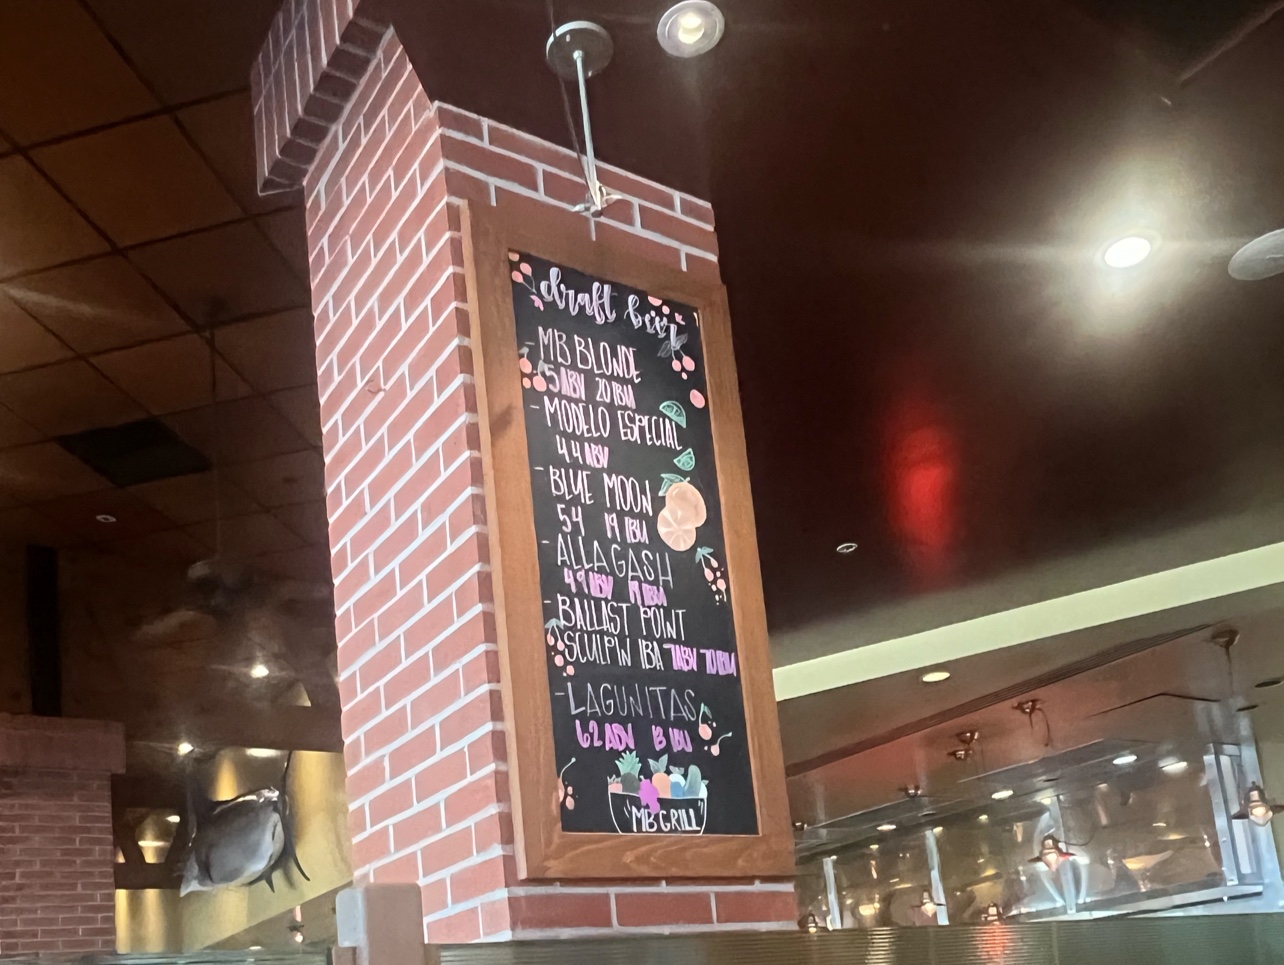 draft beer
- MB BLONDE
5 ABV 20 IBU
- MODELO ESPECIAL
4.4 ABV
- BLUE MOON
5.4 19 IBU
- ALLAGASH
4.9 ABV 19 IBU
- BALLAST POINT
SCULPIN IBA 7ABV 70 IBU
- LAGUNITAS
6.2 ABV
"MB GRILL"